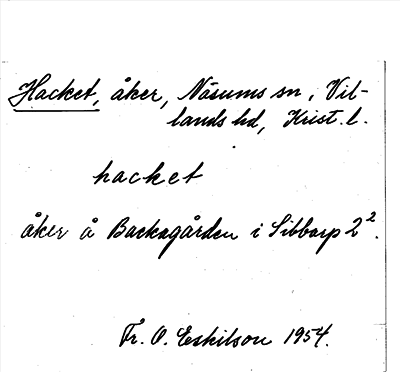 Hacket, åker, Näsums sn, Vil-
lands hd, Krist. l.
hacket
åker å Backagården i Sibbarp 2².
Fr. O. Eskilson 1954.